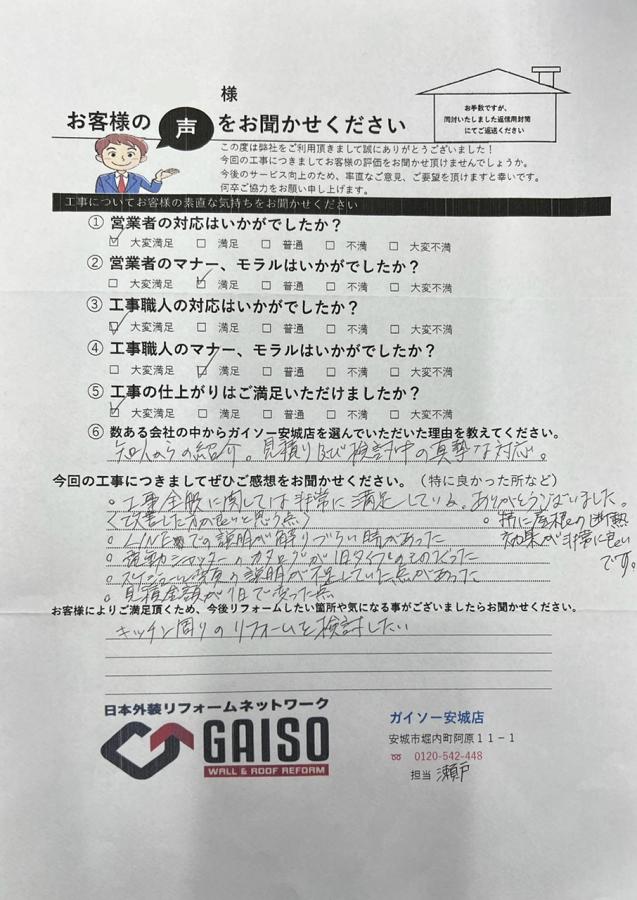 様
お客様の 声 をお聞かせください
お手数ですが、
同封いたしました返信用封筒
にてご返送ください
この度は弊社をご利用頂きまして誠にありがとうございました！
今回の工事につきましてお客様の評価をお聞かせ頂けませんでしょうか。
今後のサービス向上のため、率直なご意見、ご要望を頂けますと幸いです。
何卒ご協力をお願い申し上げます。
工事についてお客様の素直な気持ちをお聞かせください
① 営業者の対応はいかがでしたか？
☑ 大変満足 □ 満足 □ 普通 □ 不満 □ 大変不満
② 営業者のマナー、モラルはいかがでしたか？
□ 大変満足 ☑ 満足 □ 普通 □ 不満 □ 大変不満
③ 工事職人の対応はいかがでしたか？
☑ 大変満足 □ 満足 □ 普通 □ 不満 □ 大変不満
④ 工事職人のマナー、モラルはいかがでしたか？
□ 大変満足 ☑ 満足 □ 普通 □ 不満 □ 大変不満
⑤ 工事の仕上がりはご満足いただけましたか？
☑ 大変満足 □ 満足 □ 普通 □ 不満 □ 大変不満
⑥ 数ある会社の中からガイソー安城店を選んでいただいた理由を教えてください。
知人からの紹介。見積り及び検討中の真摯な対応。
今回の工事につきましてぜひご感想をお聞かせください。（特に良かった所など）
○工事全般に関しては非常に満足している。ありがとうございました。
〈改善した方が良いと思う点〉
○特に屋根の断熱
効果が非常に良い
です。
○LINEでの説明が解りづらい時があった
○電動シャッターのカタログが旧タイプのものだった
○スケジュール変更の説明が不足していた点があった
○見積金額が1日で変った点
お客様によりご満足頂くため、今後リフォームしたい箇所や気になる事がございましたらお聞かせください。
キッチン周りのリフォームを検討したい
日本外装リフォームネットワーク
GAISO
WALL & ROOF REFORM
ガイソー安城店
安城市堀内町阿原１１－１
0120-542-448
担当 瀬戸